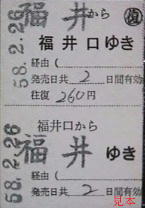 福井から ㊝
58.2.26
福井口ゆき
経由(
発売日共 2 日間有効
往復 260円
福井口から
58.2.26
福井 ゆき
経由(
発売日共 2 日間有効
見本